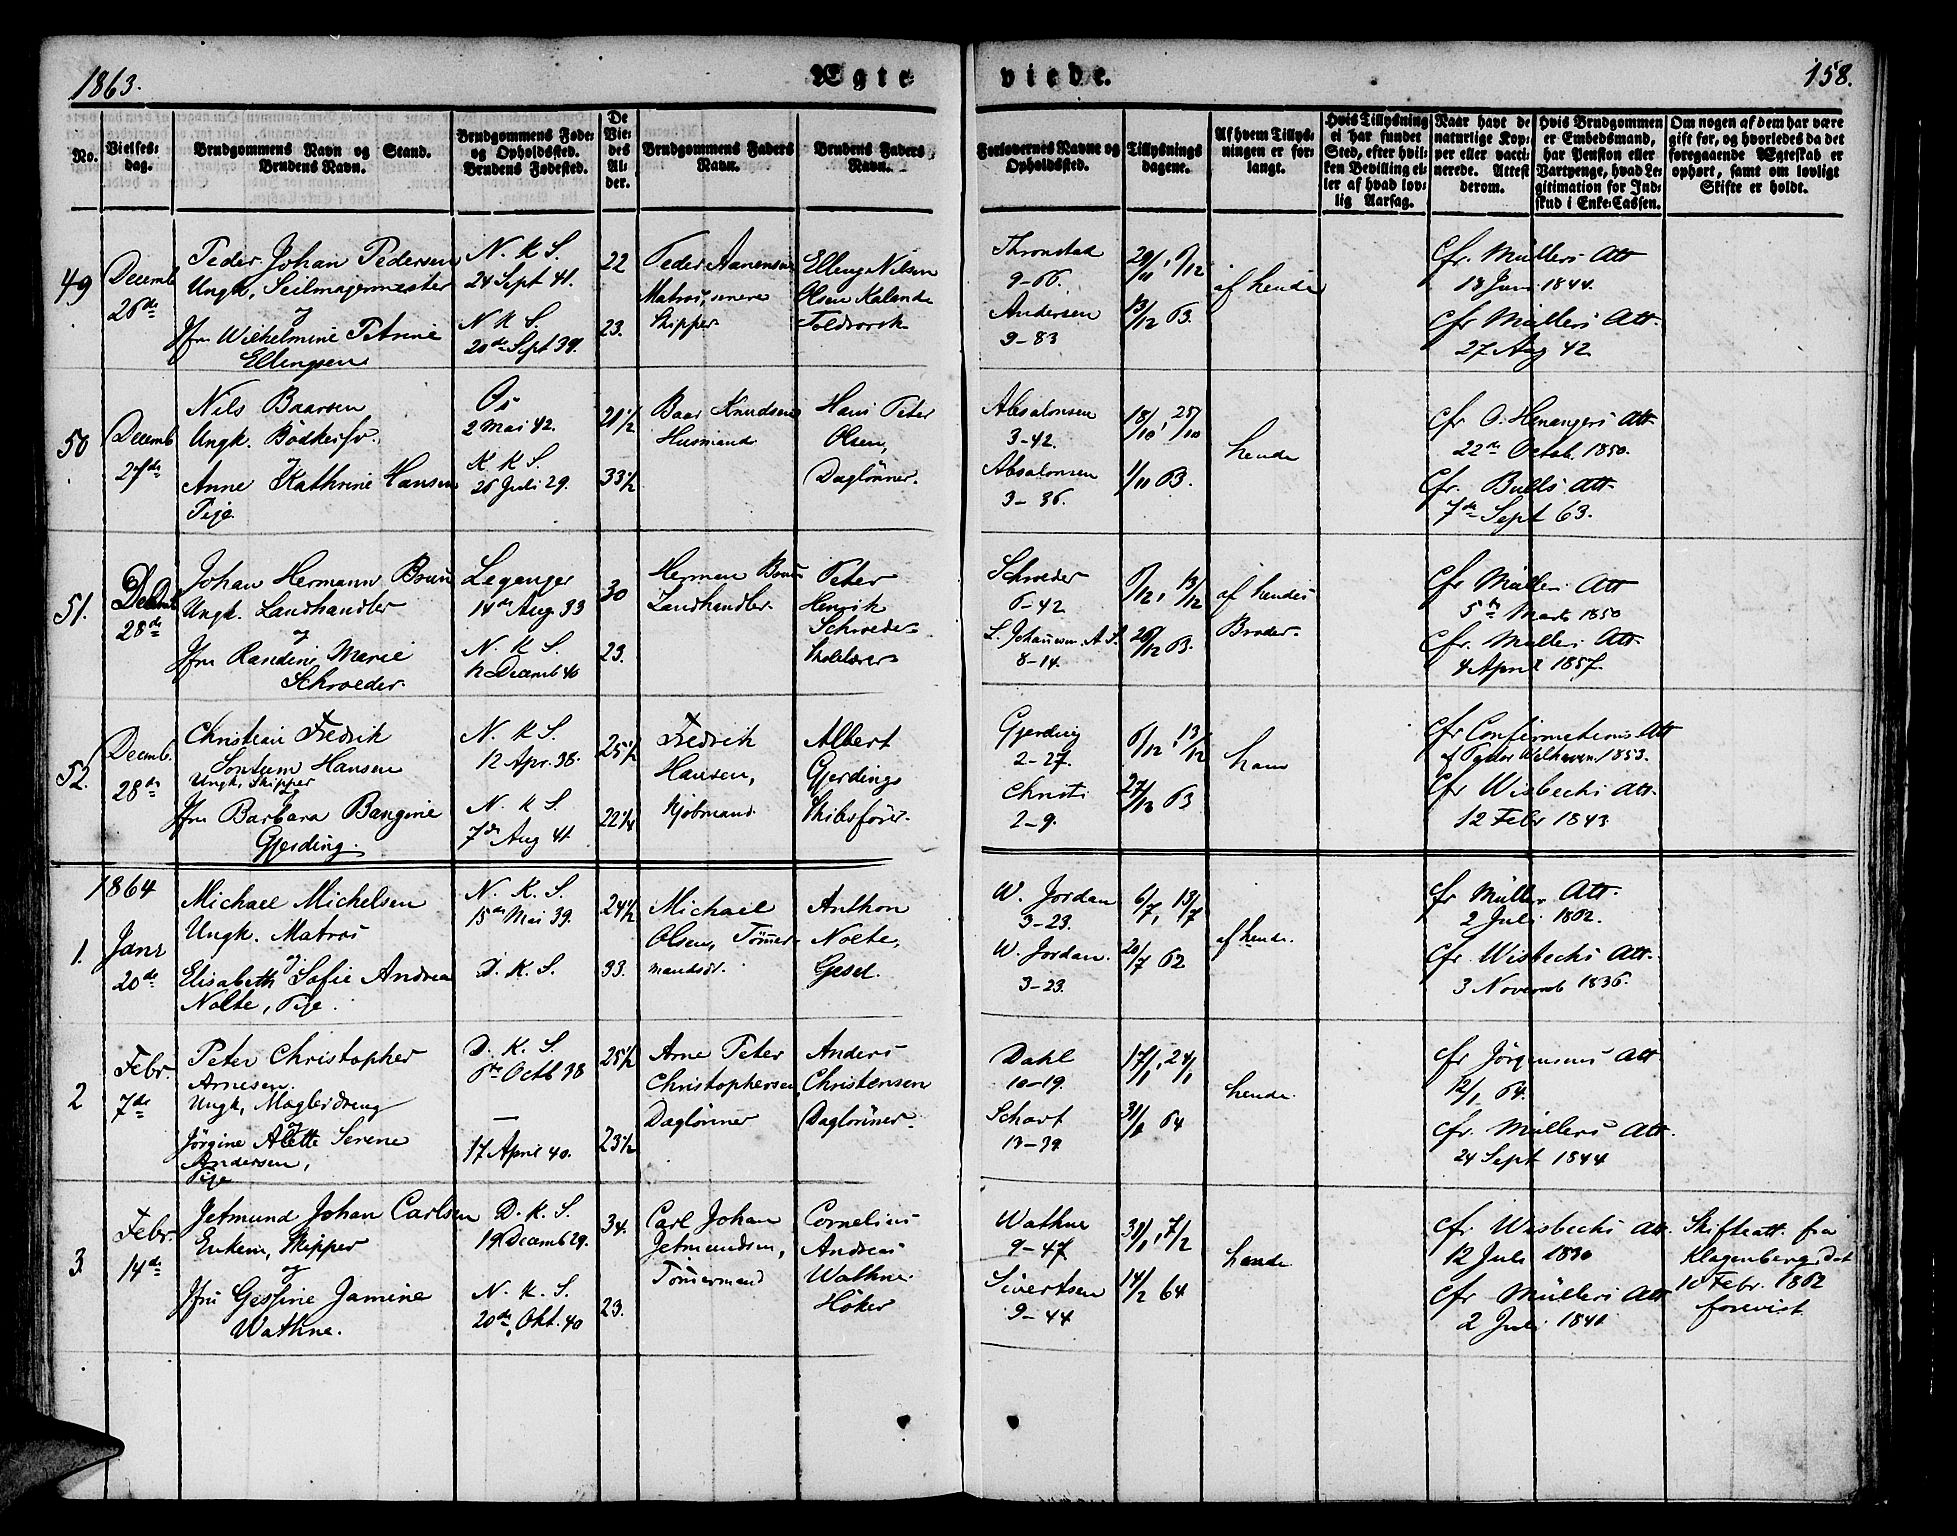 1863.
Ægte
viede.
158.
No.
Vielses-
dag.
Brudgommens Navn og Stand.
Brudens Navn.
Brudgommens Føde-
og Opholdssted.
Brudens Fødested.
De
Vie-
des
Al-
der.
Brudgommens Faders
Navn.
Brudens Faders
Navn.
Forlovernes Navne og
Opholdssted.
Tillysnings
dagene.
Af hvem Tillys-
ningen er for-
langt.
Hvis Tillysning
ei har fundet
Sted, efter hvil-
ken Bevilling el-
ler af hvad lov-
lig Aarsag.
Naar havt de
naturlige Kop-
per eller vacci-
nerede. Attest
derom.
Hvis Brudgommen
er Embedsmand,
har Pension eller
Vartpenge, hvad Le-
gitimation for Ind-
skud i Enke-Cassen.
Om nogen af dem har være
gift før, og hvorledes da det
foregaaende Ægteskab er
ophørt, samt om lovligt
Skifte er holdt.
49
Decemb
26de
Peder Johan Pedersen
Ungk, Seilmagermester
og
Jfru Wilhelmine Petrine
Ellingsen
N. K. S.
24 Sept 41.
N K S.
20de Sept 39.
22
23.
Peder Aanensen
Matros, senere
Skipper
Elling Nilsen
Olsen Kalands
Toldvorsk
Thronstad
9-66.
Andersen
9-83
29/11, 6/12
13/12 63.
af hende
Cfr. Müllers Att
18 Juni 1844.
Cfr Müllers Att.
27 Aug 42.
50
Decemb
27de
Nils Baarsen
Ungk. Bödkersv.
og
Anne Kathrine Hansen
Pige.
Os
2 Mai 42.
K K S.
26 Juli 29.
21 1/2
33 1/2
Baar Knudsen
Husmand
Hans Peter
Olsen,
Daglönner.
Absalonsen
3-42.
Absalonsen
3-36.
18/10, 25/10
1/11 63.
hende
Cfr O. Henangers Att
22de Octob. 1850.
Cfr. Bulls Att.
7de Sept 63.
51.
28de
Johan Hermann Bruun
Ungk. Landhandler
og
Jfru Randine Marie
Schroeder.
Leganger
14de Aug 33
N. K S.
12 Decemb 40
30
23.
Herman Bruun
Landhandler.
Peter
Henrik
Schroeder
Skolelærer
Schroeder
6-42
8-14.
6/12, 13/12
20/12 63.
af hendes
Broder.
Cfr Müllers Att
5te Marts 1850
Cfr. Müllers Att.
4 April 1857.
52.
Decemb.
28de
Christian Fredrik
Sontum Hansen
Ungk, Skipper
og
Jfru Barbara Bangine
Gjerding.
N. K S.
12 Apr. 38.
N. K S.
7de Aug 41
25 1/2
22 1/4
Fredrik
Hansen,
Kjöbmand
Albert
Gjerdings
Skibsförer.
Gjerding
2-27.
Christi
2-9.
6/12, 13/12
27/12 63
ham
Cfr Confirmations Att
af Pastor Welhaven 1853.
Cfr Wisbechs Att.
12 Febr 1843.
1864
1.
Janr
20de
Michael Michelsen
Ungk. Matros
og
Elisabeth Sofie Andrea
Nolte, Pige.
N. K. S.
15de Mai 39.
D. K. S.
24 1/2
33.
Michael
Olsen, Tömer-
mandssv.
Anthon
Nolte,
Gesel.
W. Jordan
3-23.
W. Jordan.
3-23.
6/7, 13/7
20/7 62
af hende.
Cfr Müllers Att.
2 Juli 1862.
Cfr Wisbechs Att.
3 Novemb 1836.
2
Febr.
7de
Peter Christopher
Arnesen.
Ungk, Mæglerdreng
og
Jörgine Alette Serene
Andersen,
Pige
D. K. S.
6te Octb 38
—
17 April 40.
25 1/2
23 1/2
Arne Peter
Christophersen
Daglönner
Anders
Christensen
Daglönner.
Dahl
10-19.
Schart
13-39.
17/1, 24/1
31/1 64
hende.
Cfr Jörgensens Att
12/1 64.
Cfr. Müllers Att.
24 Sept 1844
3.
Febr.
14de
Jetmund Johan Carlsen
Enkem, Skipper
og
Jfru Gessine Jamine
Wathne.
D. K. S.
19 Decemb 29.
N. K. S.
20de Okt. 40
34.
23.
Carl Johan
Jetmundsen,
Tömermand
Cornelius
Andreas
Wathne.
Höker
Wathne
9-47
Sivertsen
9-44
31/1, 7/2
14/2 64
hende
Cfr. Wisbechs Att.
12 Juli 1830
Cfr Müllers Att
2 Juli 1841
Skifteatt. fra
Klagenberg. Dat
10 Febr. 1862
forevist